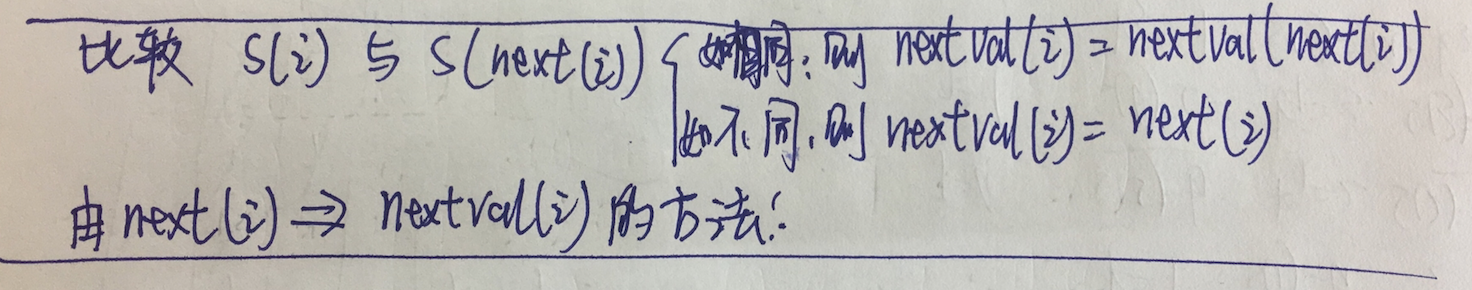 比较 S(i) 与 S(next(i)) { 如相同:则 nextval(i) = nextval(next(i))
如不同,则 nextval(i) = next(i)
由 next(i) ⇒ nextval(i) 的方法: